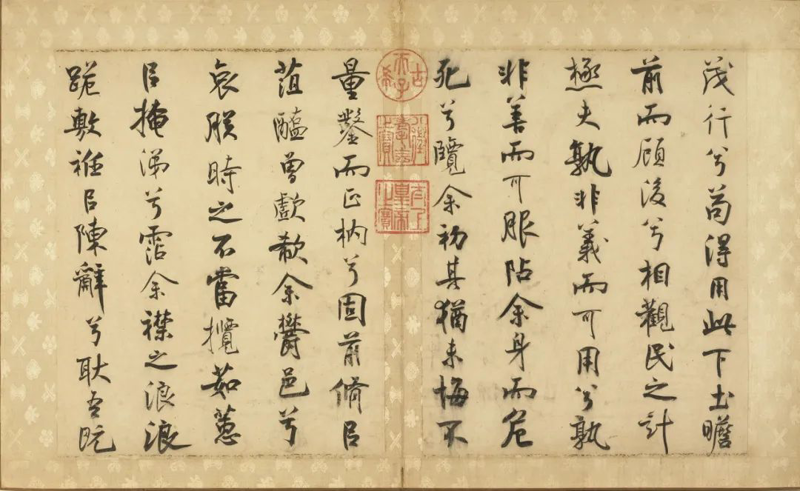 茂行兮苟得用此下土瞻
前而顧後兮相觀民之計
極夫孰非義而可用兮孰
非善而可服阽余身而危
死兮覽余初其猶未悔不
古希天子
太上皇帝之寶
量鑿而正枘兮固前脩㠯
菹醢曾歔欷余鬱邑兮
哀朕時之不當攬茹蕙
㠯掩涕兮霑余襟之浪浪
跪敷衽㠯陳辭兮耿吾既